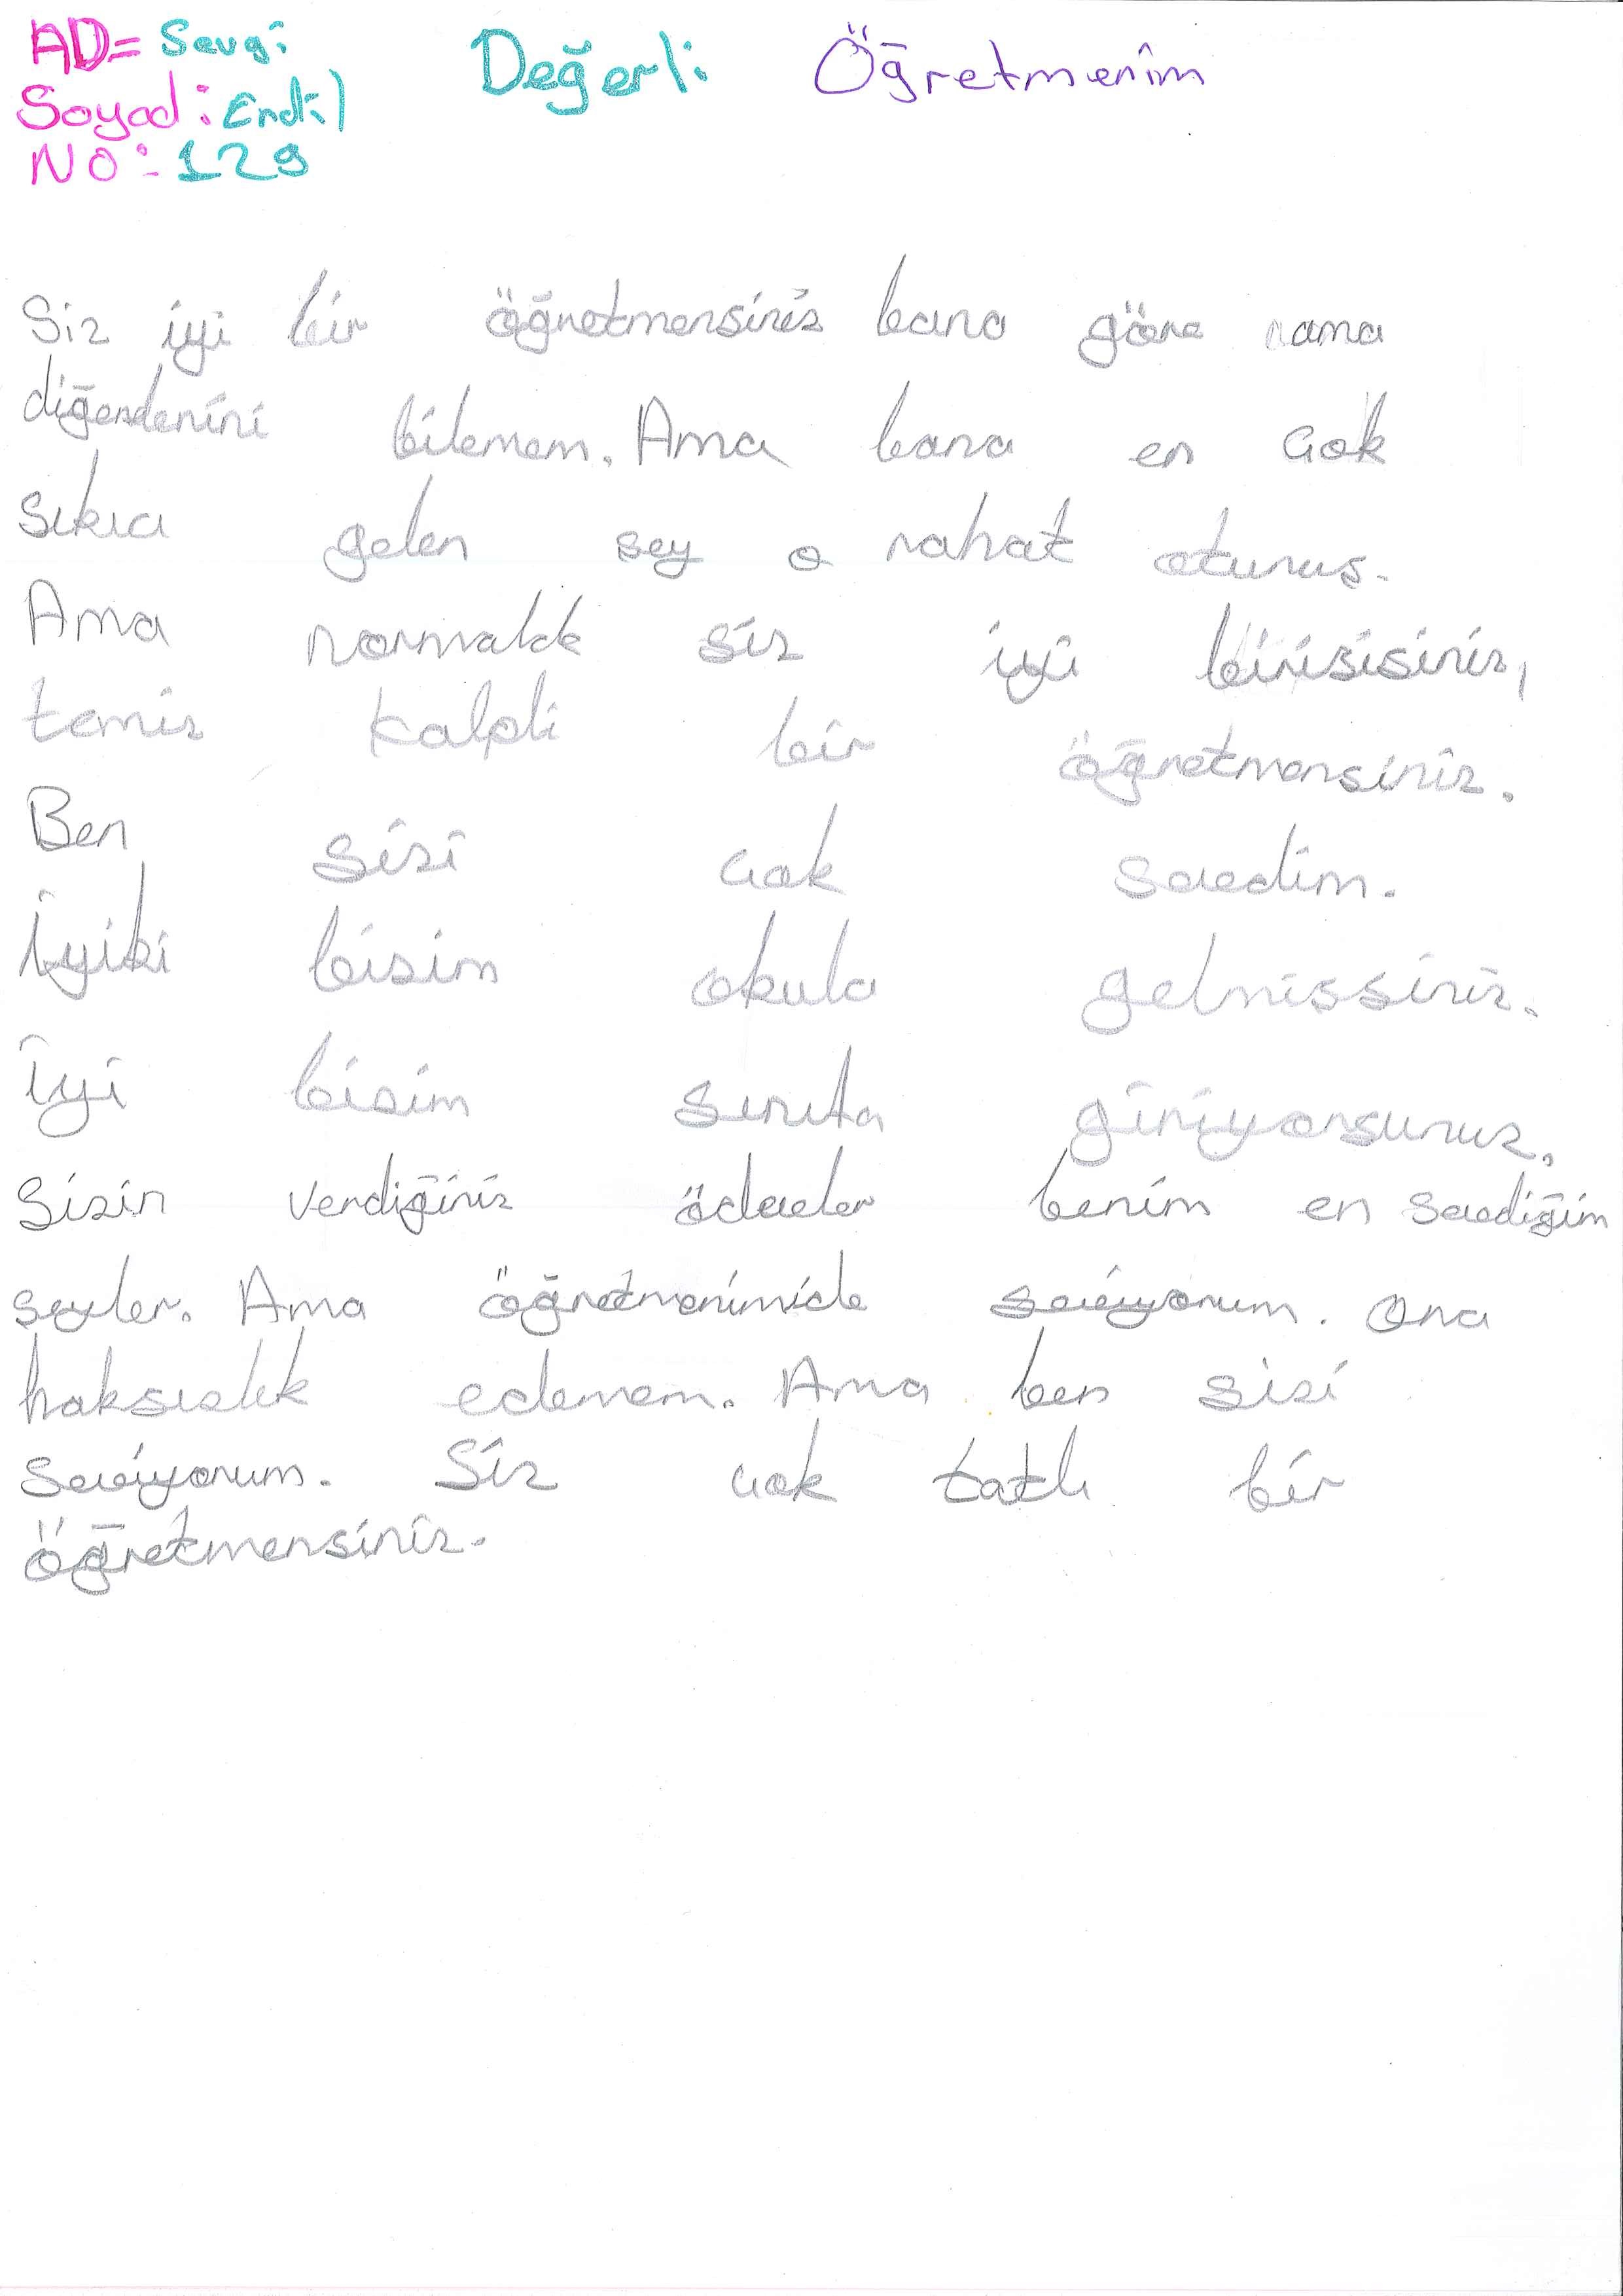 AD= Sevgi
Değerli Öğretmenim
Soyad: Erdil
NO: 129
Siz iyi bir öğretmensiniz bana göre ama
diğerlerini bilemem. Ama bana en çok
sıkıcı gelen sey o rahat oturus.
Ama normalde siz iyi birisisiniz,
temiz kalpli bir öğretmensiniz.
Ben sizi çok sevdim.
İyiki bizim okula gelmissiniz.
İyi bizim sınıfa giriyorsunuz.
Sizin verdiğiniz ödevler benim en sevdiğim
seyler. Ama öğretmenimide seviyorum. Ona
haksızlık edemem. Ama ben sizi
seviyorum. Siz çok tatlı bir
öğretmensiniz.